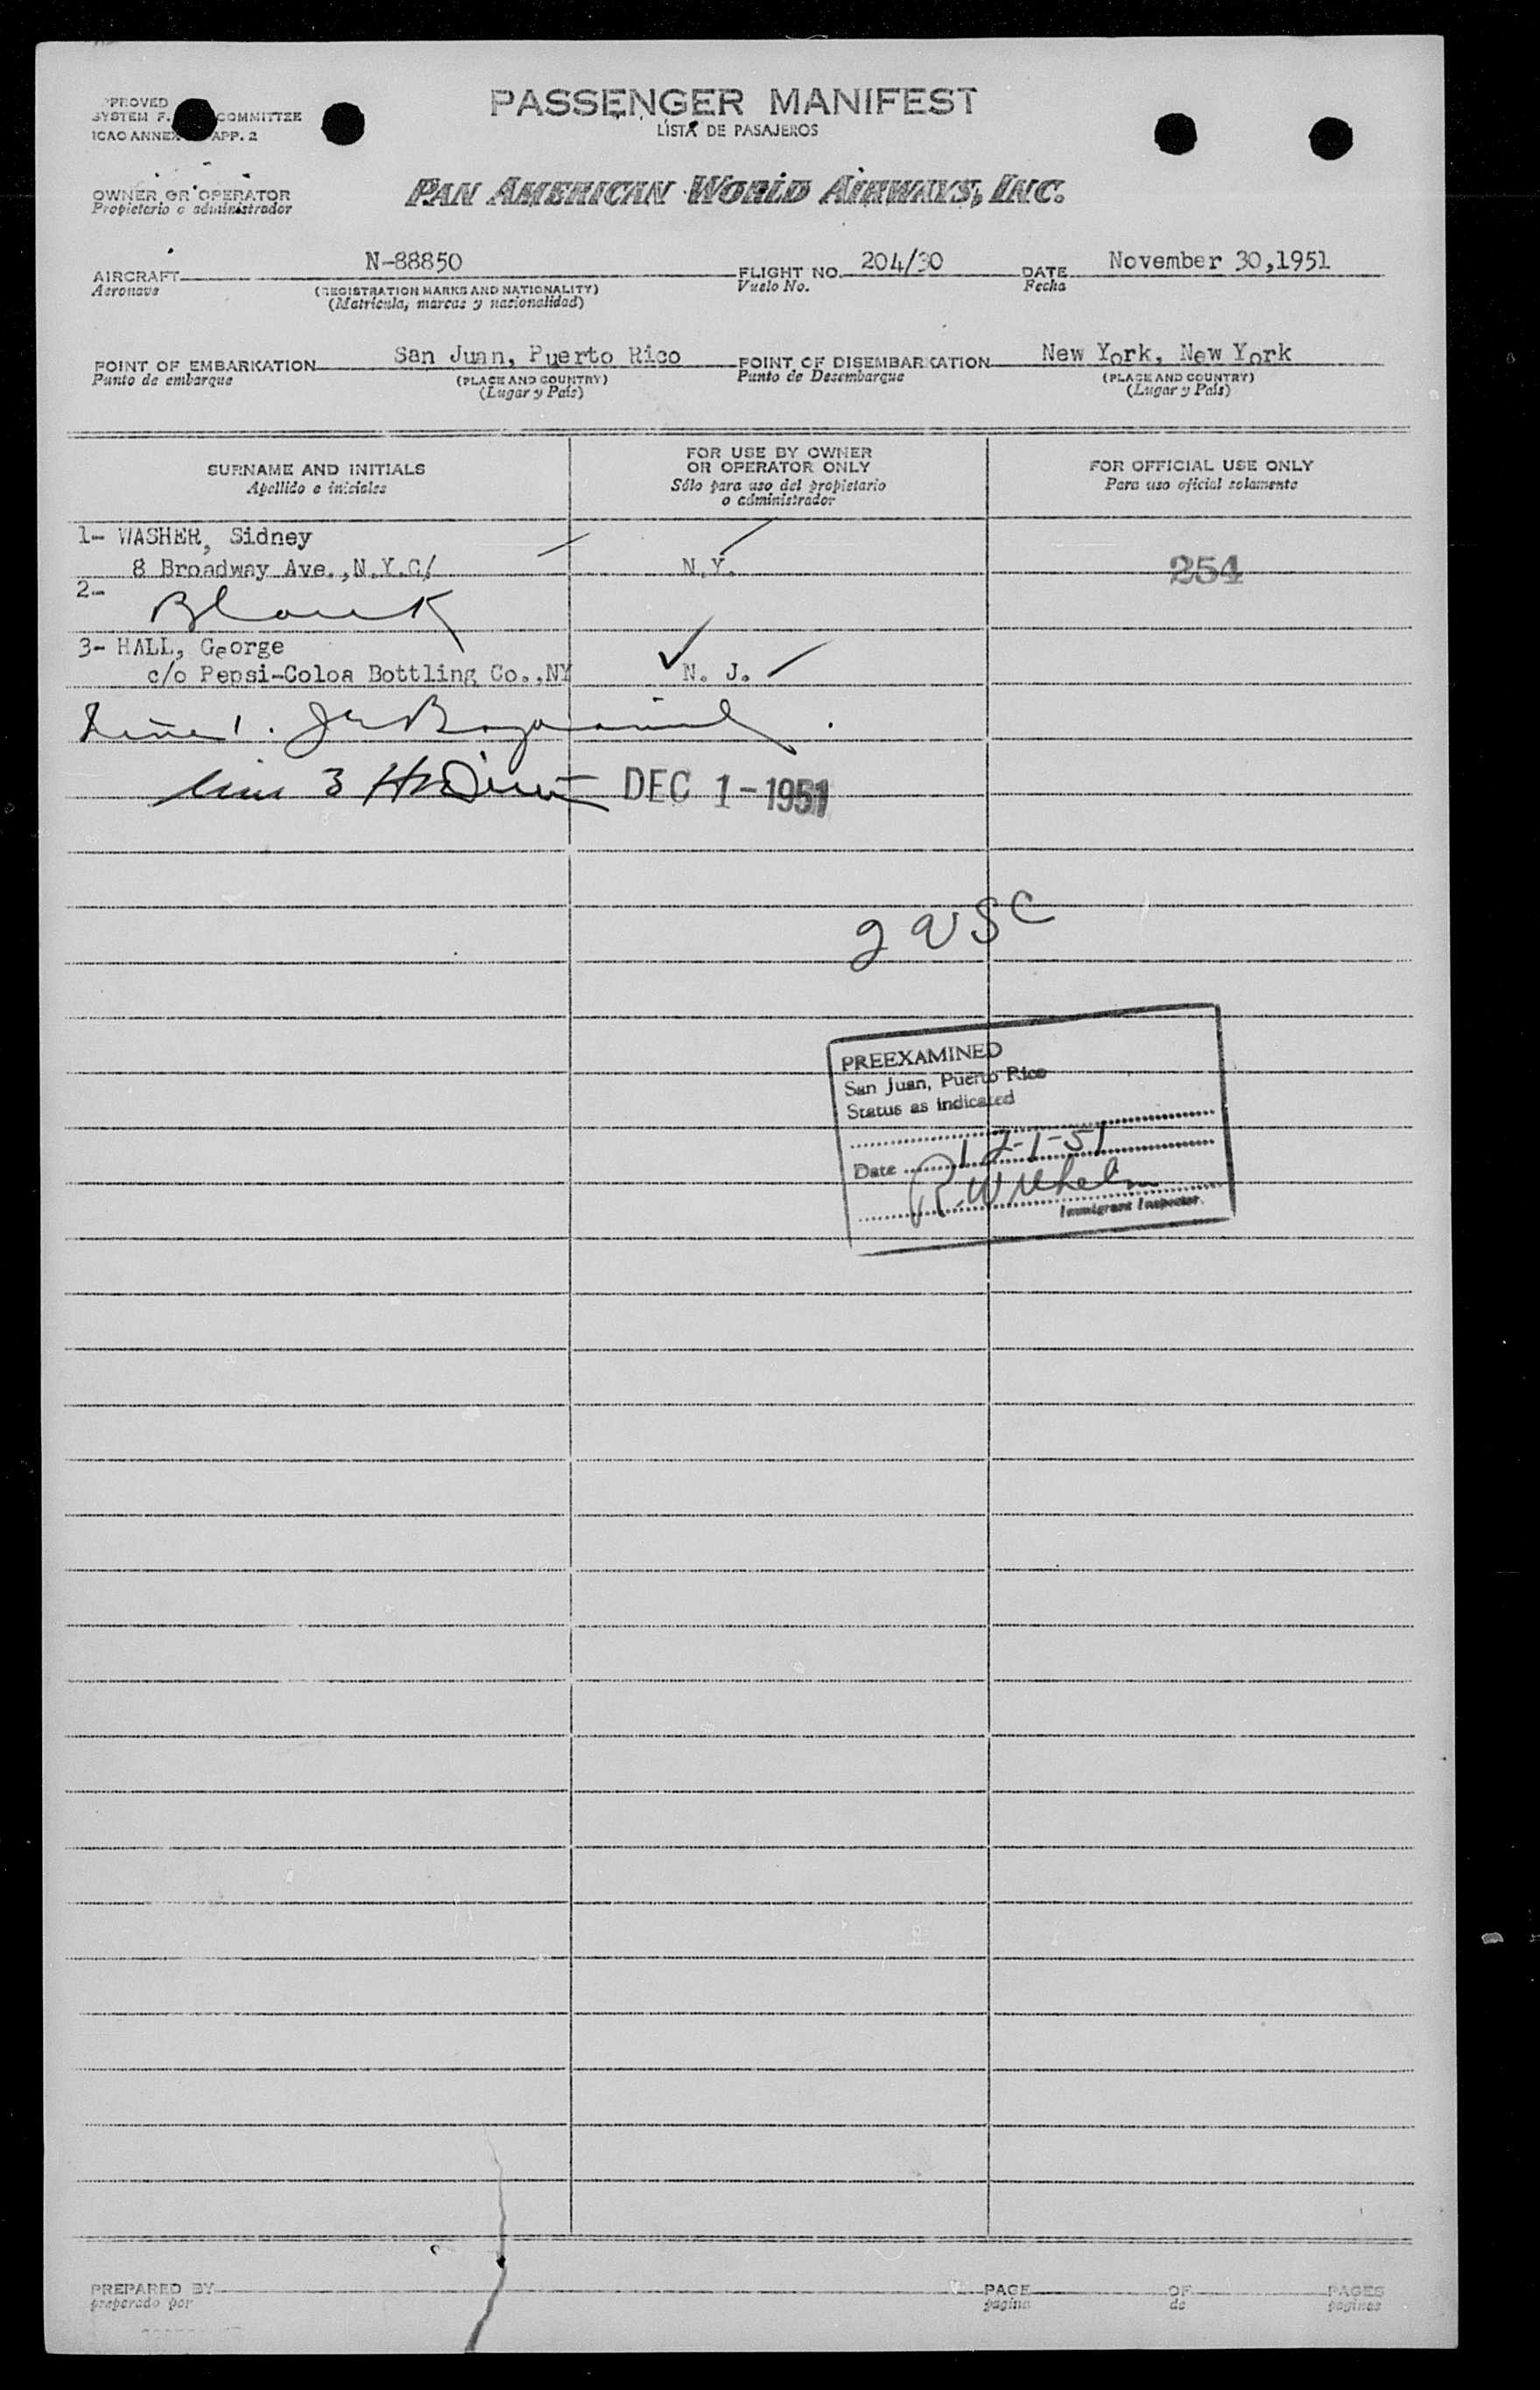 PASSENGER MANIFEST
LISTA DE PASAJEROS
PROVED
SYSTEM F. COMMITTEE
ICAO ANNEX APP. 2
OWNER OR OPERATOR
Propietario o administrador
PAN AMERICAN WORLD AIRWAYS, INC.
AIRCRAFT N-88850 FLIGHT NO. 204/30 DATE November 30,1951
Aeronave (REGISTRATION MARKS AND NATIONALITY) Vuelo No. Fecha
(Matricula, marcas y nacionalidad)
POINT OF EMBARKATION San Juan, Puerto Rico POINT OF DISEMBARKATION New York, New York
Punto de embarque (PLACE AND COUNTRY) Punto de Desembarque (PLACE AND COUNTRY)
(Lugar y País) (Lugar y País)
SURNAME AND INITIALS
Apellido e iniciales
FOR USE BY OWNER
OR OPERATOR ONLY
Sólo para uso del propietario
o administrador
FOR OFFICIAL USE ONLY
Para uso oficial solamente
1- WASHER, Sidney
8 Broadway Ave.,N.Y.C/ N.Y. 254
2-
Blank
3- HALL, George
c/o Pepsi-Coloa Bottling Co.,NY N. J.
Line 1.
Line 3 DEC 1-1951
2 USC
PREEXAMINED
San Juan, Puerto Rico
Status as indicated
Date 12-1-51
R. Wilhelm
Immigrant Inspector.
PREPARED BY PAGE OF PAGES
preparado por pagina de paginas